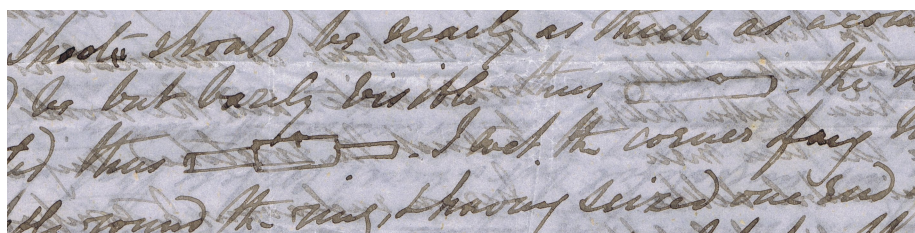 should be nearly as thick as
be but barely visible thus the
thus . I wet the corner of my
round the ring, & having seized one end